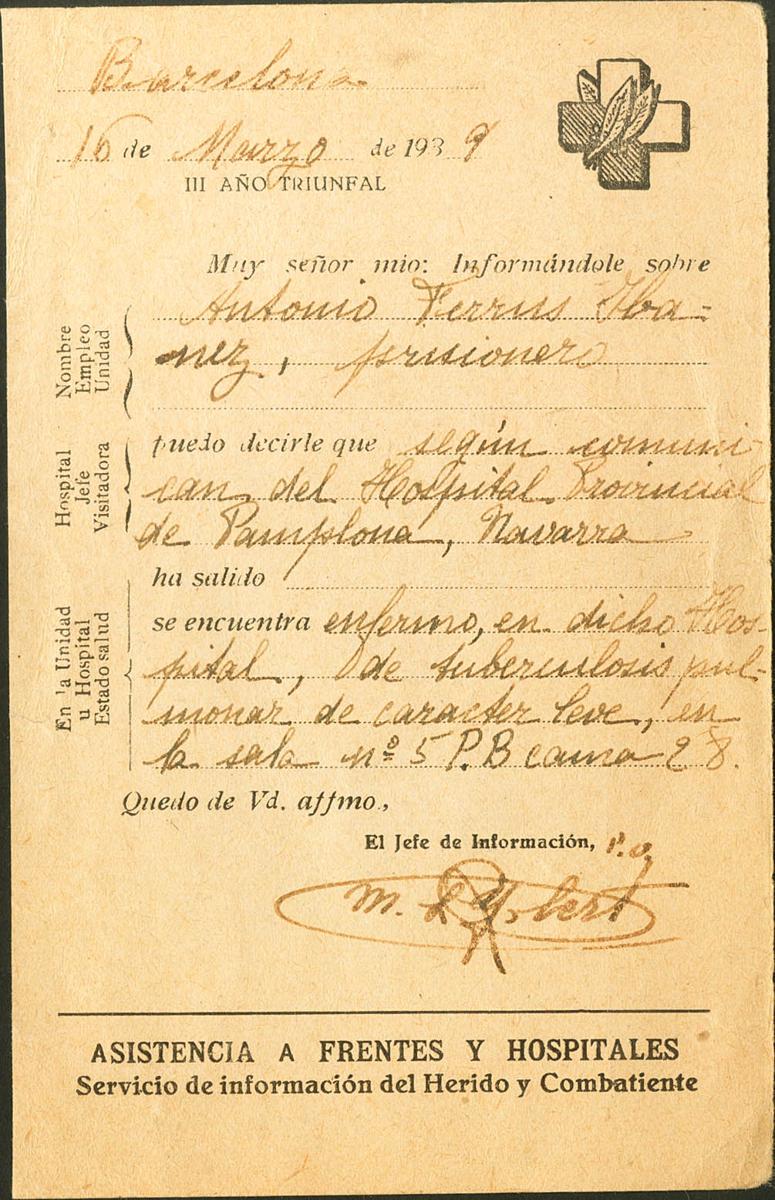 Barcelona
16 de Marzo de 1939
III AÑO TRIUNFAL
Muy señor mio: Informándole sobre
Nombre
Empleo
Unidad
Antonio Ferrus Iba-
nez, prisionero
Hospital
Jefe
Visitadora
puedo decirle que según comuni
can del Hospital Provincial
de Pamplona, Navarra
ha salido
En la Unidad
u Hospital
Estado salud
se encuentra enfermo, en dicho Hos-
pital, de tuberculosis pul-
monar de caracter leve, en
la sala nº 5 P.B cama 28.
Quedo de Vd. affmo.,
El Jefe de Información, P.O.
M.
ASISTENCIA A FRENTES Y HOSPITALES
Servicio de información del Herido y Combatiente